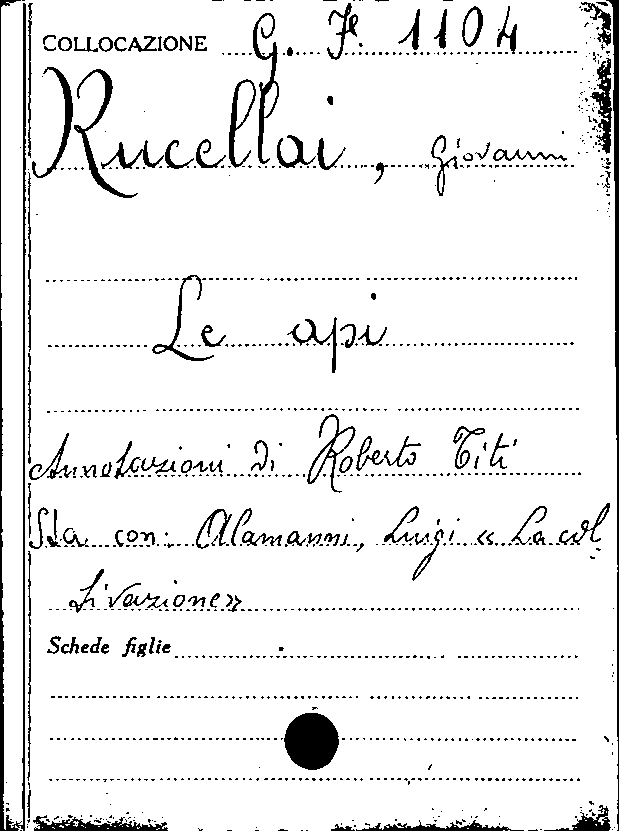 COLLOCAZIONE G. Fe. 1104
Rucellai, Giovanni
Le api
Annotazioni di Roberto Titi
Sta con: Alamanni, Luigi « La col
tivazione»
Schede figlie